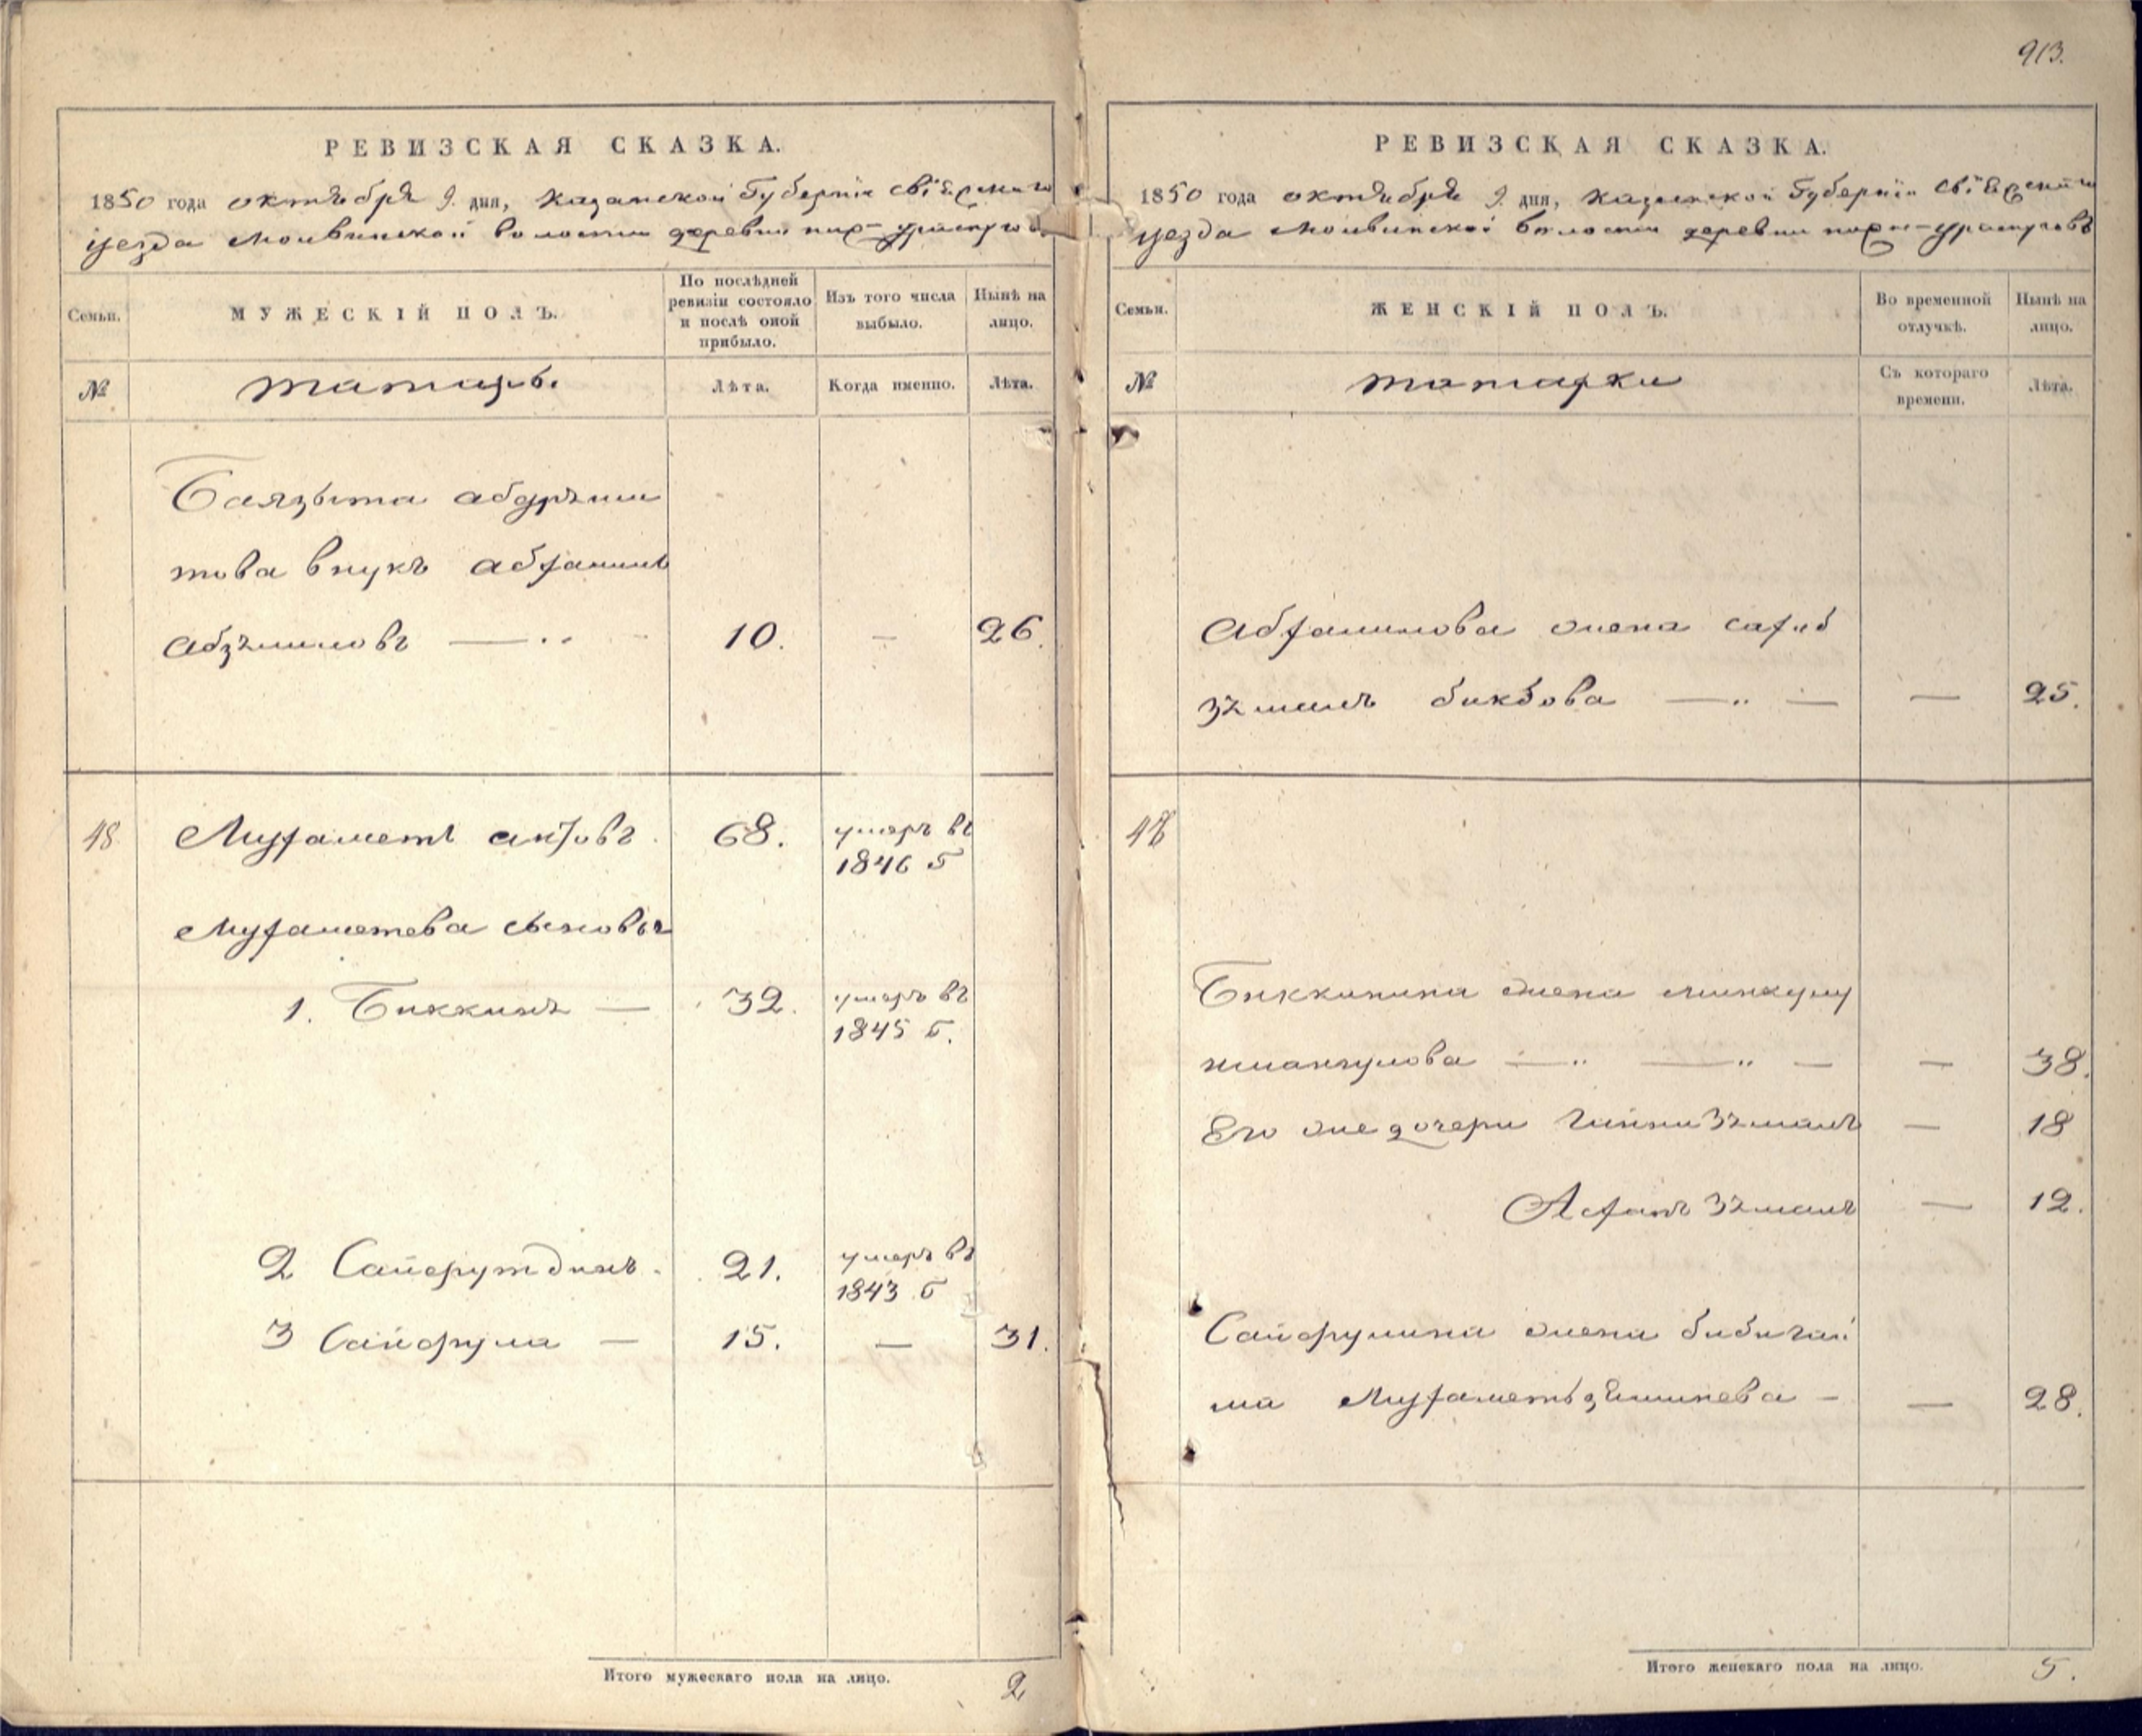 913.
РЕВИЗСКАЯ СКАЗКА.
1850 года октября 9. дня, Казанской Губерніи Свіяжскаго
уезда Молвинской волости деревни
Семьи.
МУЖЕСКІЙ ПОЛЪ.
По послѣдней ревизіи состояло и послѣ оной прибыло.
Изъ того числа выбыло.
Нынѣ на лицо.
№
татаръ.
Лѣта.
Когда именно.
Лѣта.
Баязыта абдрѣши
това внукъ абрашитъ
10. — 26.
48 Мухаметъ 68. умеръ въ
1846 г
Мухаметева сыновья
1. Биккинъ — 32. умеръ въ
1845 г.
2 Сайфутдинъ. 21. умеръ въ
1843 г
3 Сайфула — 15. — 31.
Итого мужескаго пола на лицо. 2
РЕВИЗСКАЯ СКАЗКА.
1850 года октября 9. дня, Казанской Губерніи Свіяжскаго
уезда Молвинской волости деревни
Семьи.
ЖЕНСКІЙ ПОЛЪ.
Во временной отлучкѣ.
Нынѣ на лицо.
№
татарки
Съ котораго времени.
Лѣта.
жена
бикбова — — 25.
48
Биккинина жена
— — 38.
Его же дочери — 18
— 12.
Сайфулина жена бибигай
ша — — 28.
Итого женскаго пола на лицо. 5.